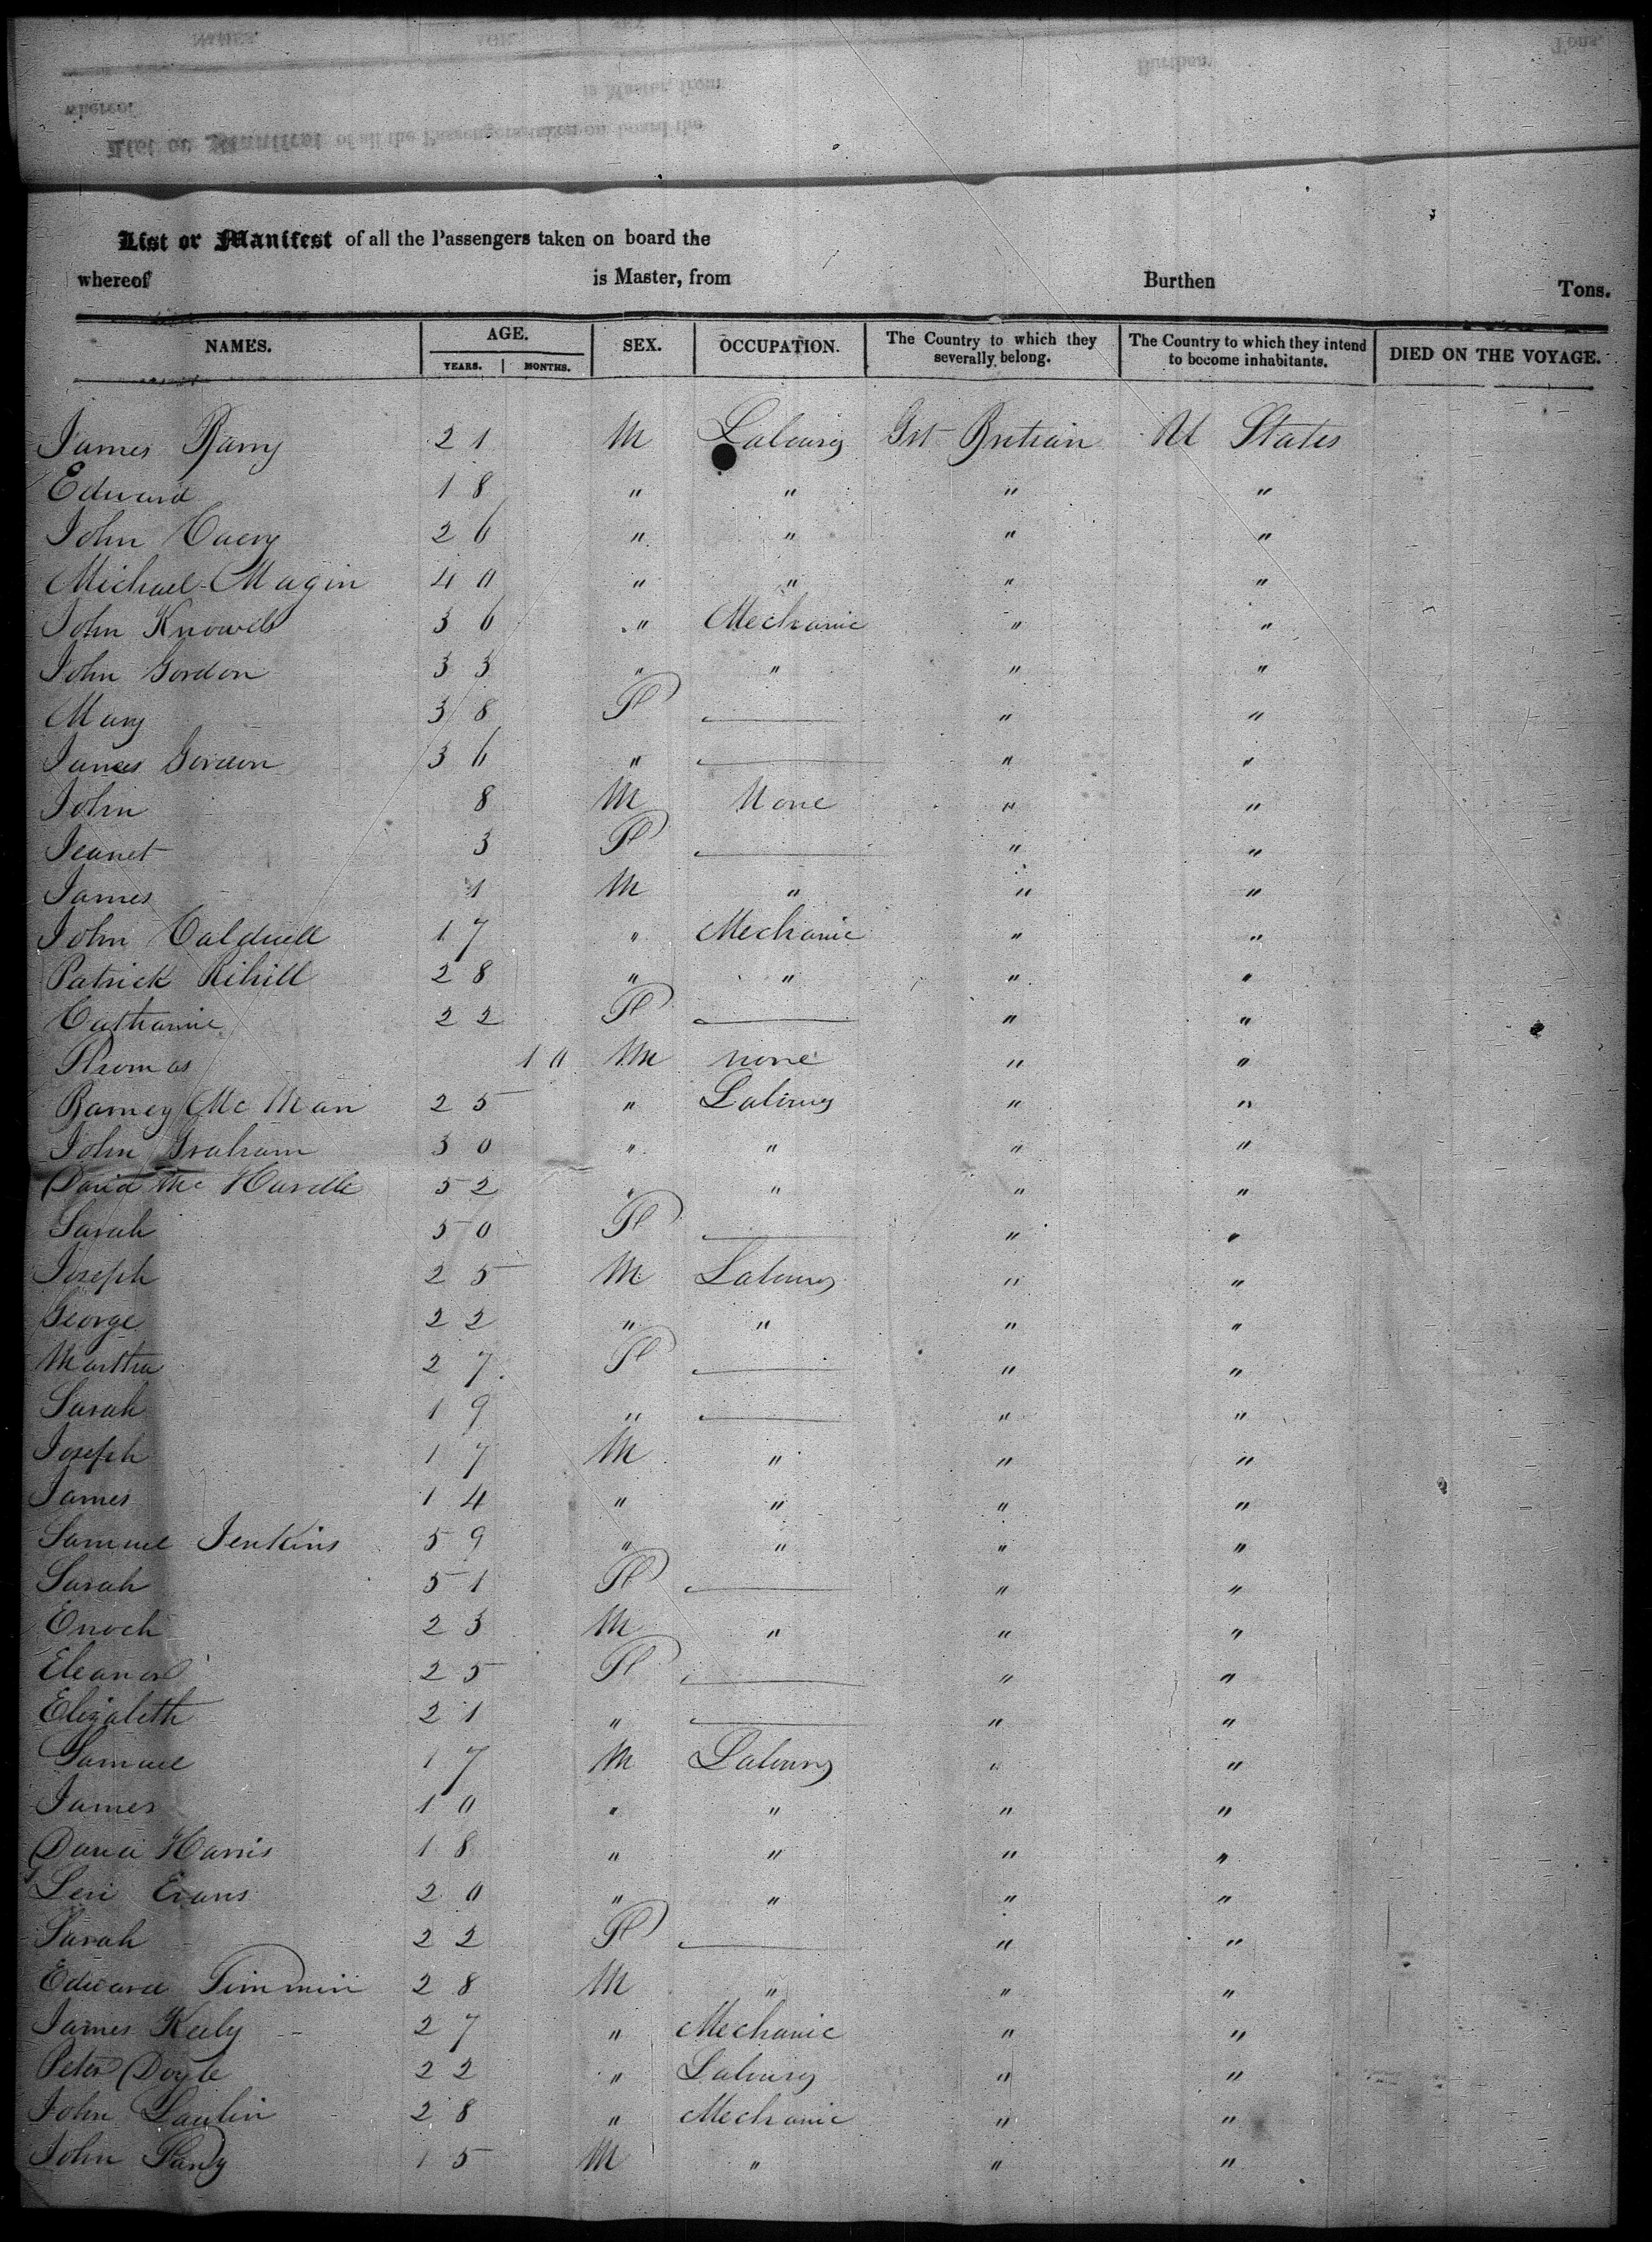 List or Manifest of all the Passengers taken on board the
whereof is Master, from Burthen Tons.
NAMES. AGE. SEX. OCCUPATION. The Country to which they severally belong. The Country to which they intend to become inhabitants. DIED ON THE VOYAGE.
YEARS. MONTHS.
James Barry 21 M Labourer Grt Britian U States
Edward 18 " " " "
John 26 " " " "
Michael Magin 40 " " " "
John Knowels 36 " Mechanic " "
John Gordon 33 " " " "
Mary 38 F — " "
James Gordon 36 " — " "
John 8 M None " "
Jeanet 3 F — " "
James 1 M " " "
John Caldwell 17 " Mechanic " "
Patrick Rihill 28 " " " "
Catharine 22 F — " "
Thomas 10 M none " "
Barney Mc Man 25 " Labourer " "
John Graham 30 " " " "
David Mc 52 " " " "
Sarah 50 F — " "
Joseph 25 M Labourer " "
George 22 " " " "
Martha 27 F — " "
Sarah 19 " — " "
Joseph 17 M " " "
James 14 " " " "
Samuel Jenkins 59 " " " "
Sarah 51 F — " "
Enoch 23 M " " "
Eleanor 25 F — " "
Elizabeth 21 " — " "
Samuel 17 M Labourer " "
James 10 " " " "
David Harris 18 " " " "
Levi Evans 20 " " " "
Sarah 22 F — " "
Edward Timmin 28 M " " "
James Keely 27 " Mechanic " "
Peter Doyle 22 " Labourer " "
John Laulin 28 " Mechanic " "
John 15 M " " "